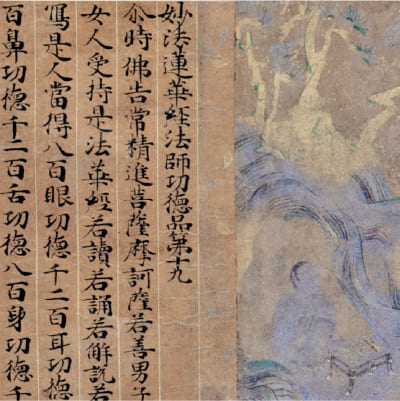 妙法蓮華經法師功德品第十九
尒時佛告常精進菩薩摩訶薩若善男子
女人受持是法華經若讀若誦若解說若
寫是人當得八百眼功德千二百耳功德
百鼻功德千二百舌功德八百身功德千